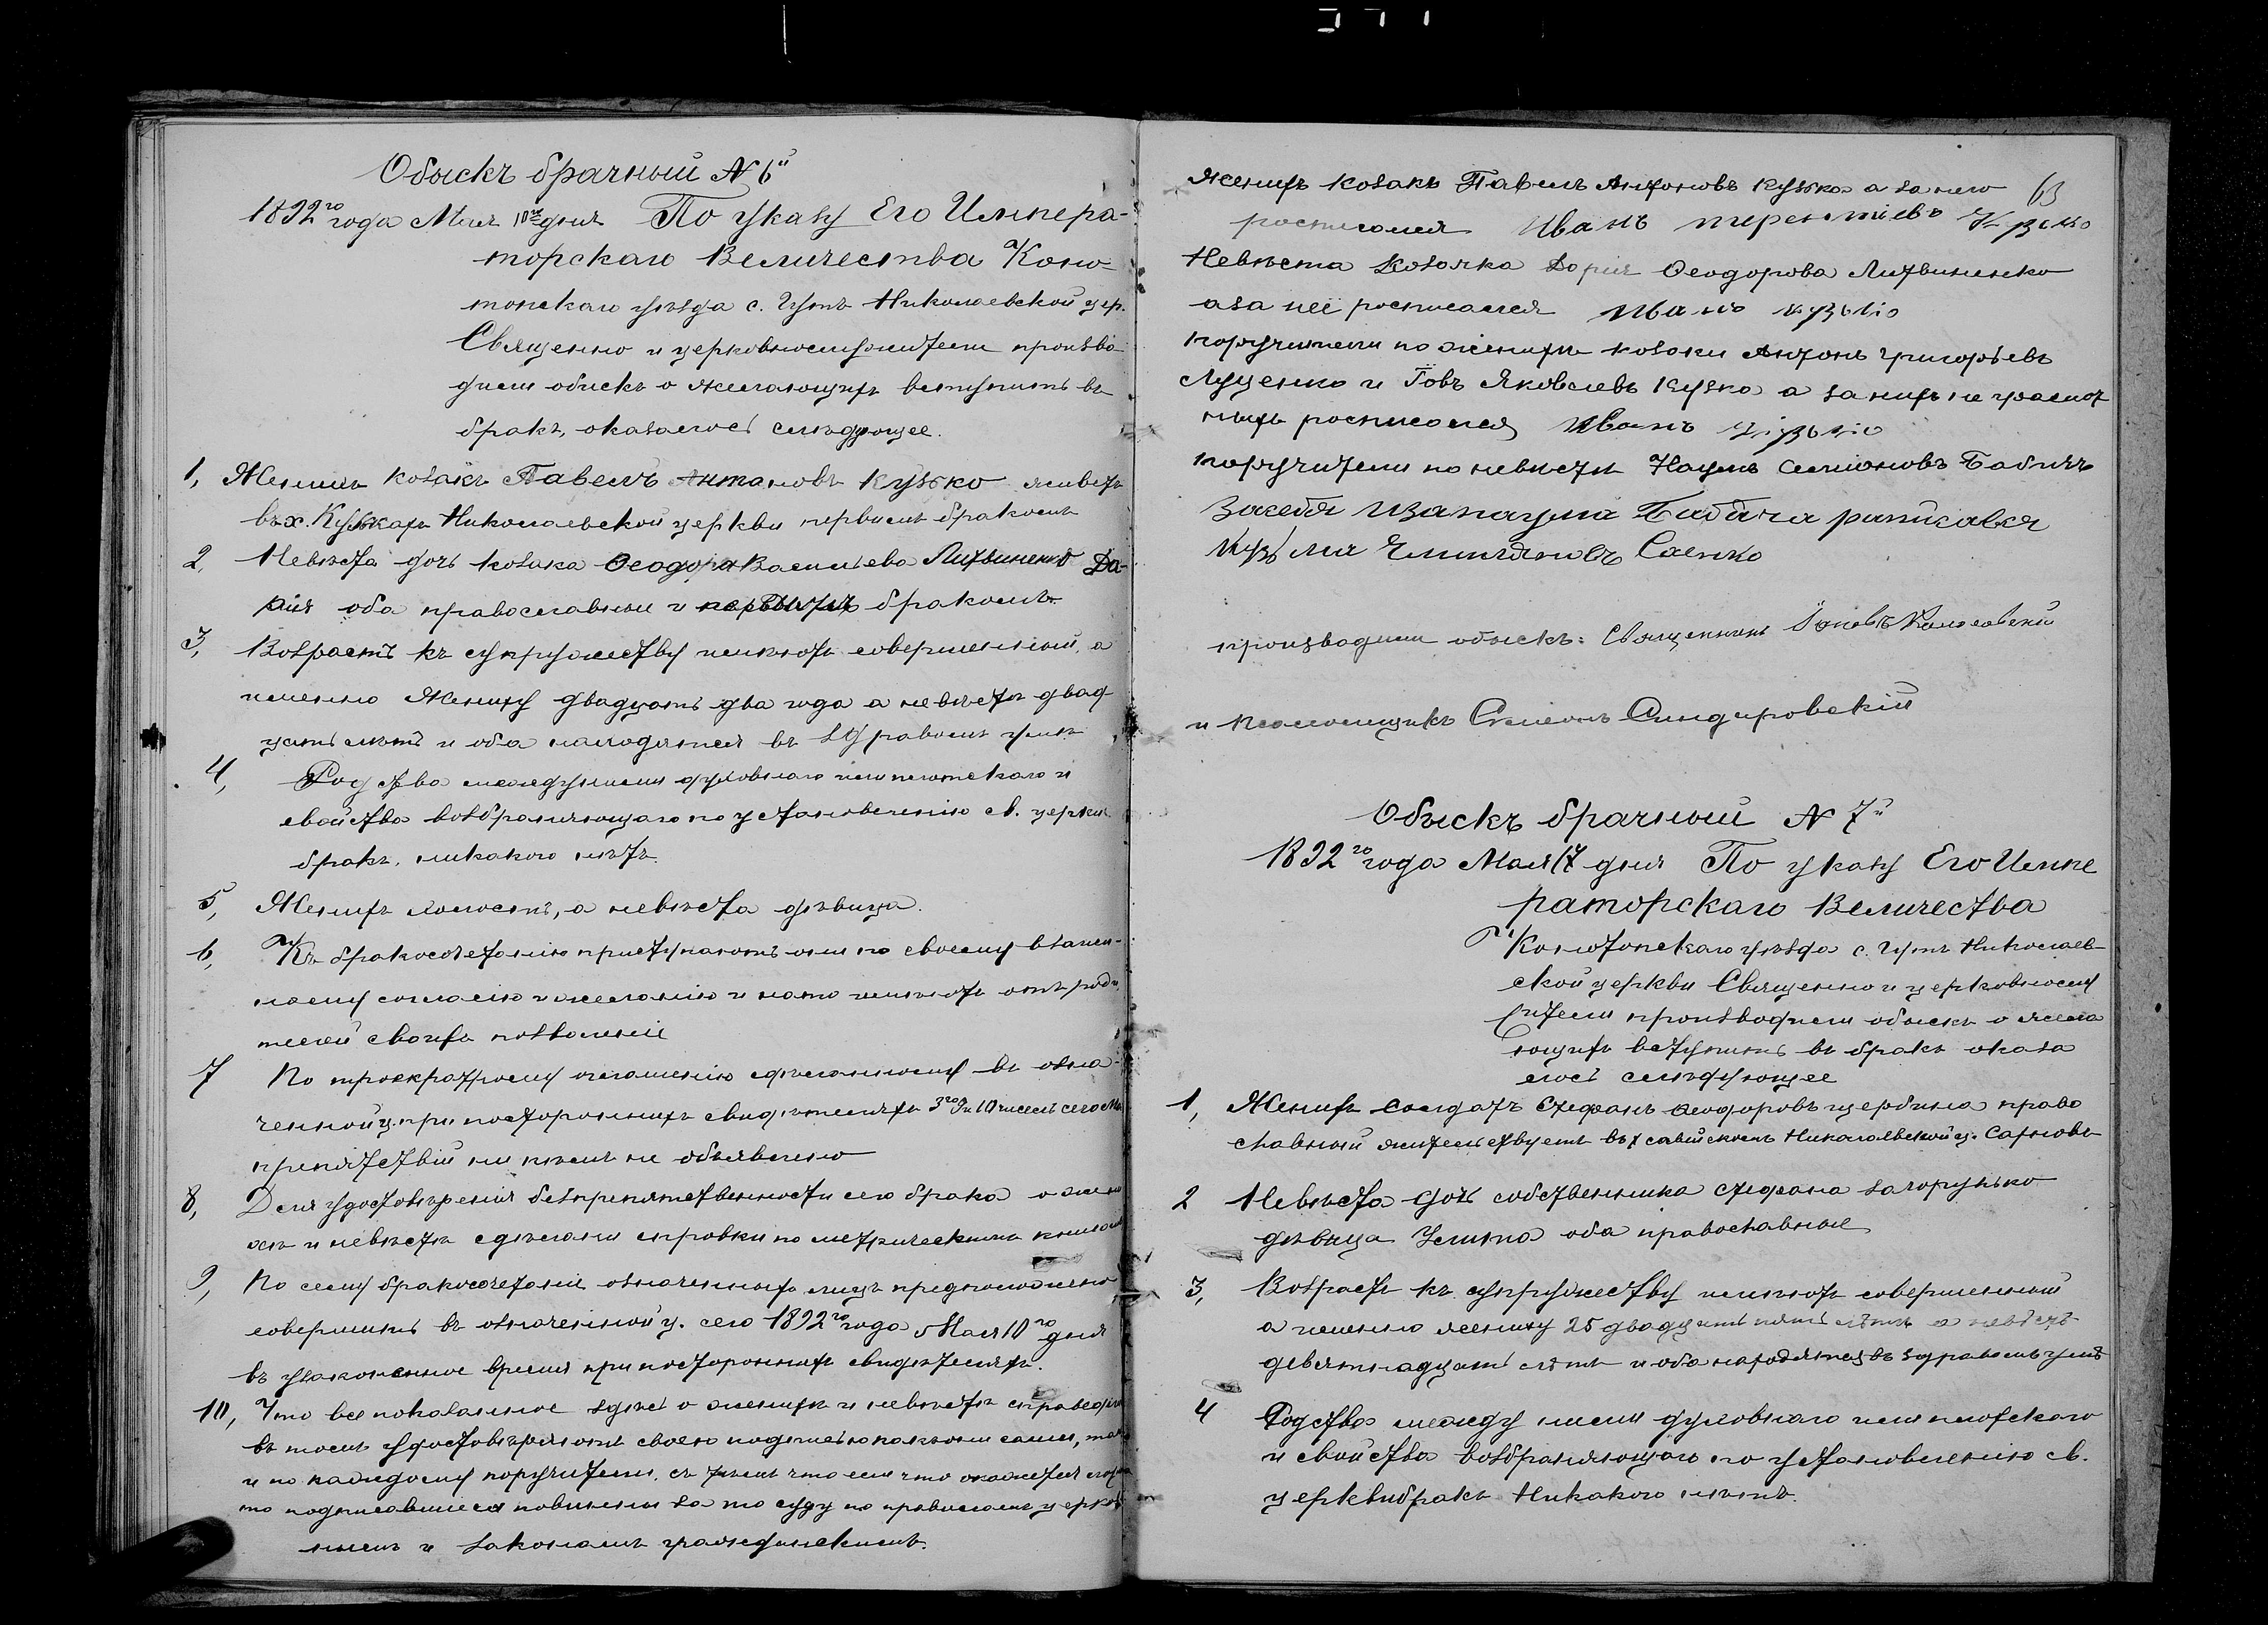 Обыскъ брачный № 6й
1892го года Мая 10го дня По указу Его Импера-
торскаго Величества Коно-
топскаго уѣзда с. Гутъ Николаевской цер.
Священно и церковнослужители произво
дили обискъ о желающихъ вступить въ
бракъ, оказалось слѣдующее.
1, Женихъ козакъ Павелъ Антоновъ Кузько живетъ
въ х. Кузькахъ Николаевской церкви первымъ бракомъ
2, Невѣста дочь козака Феодора Васильева Литвиненко Да-
рия оба православные и первымъ бракомъ.
3, Возрастъ къ супружеству имѣютъ совершенный, а
именно Жениху двадцать два года а невѣстѣ двад
цать лѣтъ и оба находятся въ здравомъ умѣ
4, Родства между ними духовнаго или плотскаго и
свойства возбраняющаго по установленію св. церкви
бракъ, никакого нѣтъ.
5, Женихъ холостъ, а невѣста дѣвица.
6, Къ бракосочетанію приступаютъ они по своему взаим-
ному согласію и желанію и на то имѣютъ отъ роди
телей своихъ позволеніе
7 По троекратному оглашенію сдѣланному въ озна-
ченной ц. при постороннихъ свидѣтеляхъ 3го и 10 чиселъ сего Ма
препятствій ни кѣмъ не объявлено
8, Для удостовѣренія безпрепятственности сего брака о жени
хѣ и невѣстѣ сдѣланы справки по метрическимъ книгамъ
9, По сему бракосочетаніе означенныхъ лицъ предположено
совершить въ означенной ц. сего 1892го года Мая 10го дня
въ узаконенное время при постороннихъ свидѣтеляхъ.
10, Что все показанное здѣсь о женихѣ и невѣстѣ справедли
въ томъ удостовѣряютъ своею подписью какъ они сами, такъ
и по каждому поручители, съ тѣмъ что если что окажется
то подписавшиеся повинны за то суду по правиламъ церков
нымъ и законамъ гражданскимъ.
63
Женихъ козакъ Павелъ Антоновъ Кузько а за него
росписался Иванъ терентіевъ Кузько
Невѣста козачка Дория Феодорова Литвиненко
а за неё росписался Иванъ кузько
поручители по женихѣ козаки Антонъ Григорьевъ
Луценко и Іовъ Яковлевъ Кузко а за нихъ не грамот
ныхъ росписался Иванъ Кузько
поручители по невѣстѣ Наумъ Симоновъ Бабичъ
Засебя Изанаума Бабича
Саенко
производили обыскъ: Священникъ Іоаковъ
и псаломщикъ Симонъ Синдировскій
Обыскъ брачный № 7й
1892го года Мая 17 дня По указу Его Импе
раторскаго Величества
Конотопскаго уѣзда с. Гутъ Николаев
ской церкви Священно и церковнослу
жители производили обыскъ о жела
ющихъ вступить въ бракъ оказа
лось слѣдующее
1, Женихъ Солдатъ Стефанъ Феодоровъ щербина право
славный жительствуетъ въ Николаевской ц.
2 Невѣста дочь собственника Стефана загорулько
дѣвица Улита оба православные
3, Возрастъ къ супружеству имѣютъ совершенный
а именно жениху 25 двадцать пять лѣтъ а невѣстѣ
девятнадцать лѣтъ и оба находятся въ здравомъ умѣ
4 Родства между ними духовнаго или плотскаго
и свойства возбраняющаго по установленію св.
церкви бракъ Никакого нѣтъ.